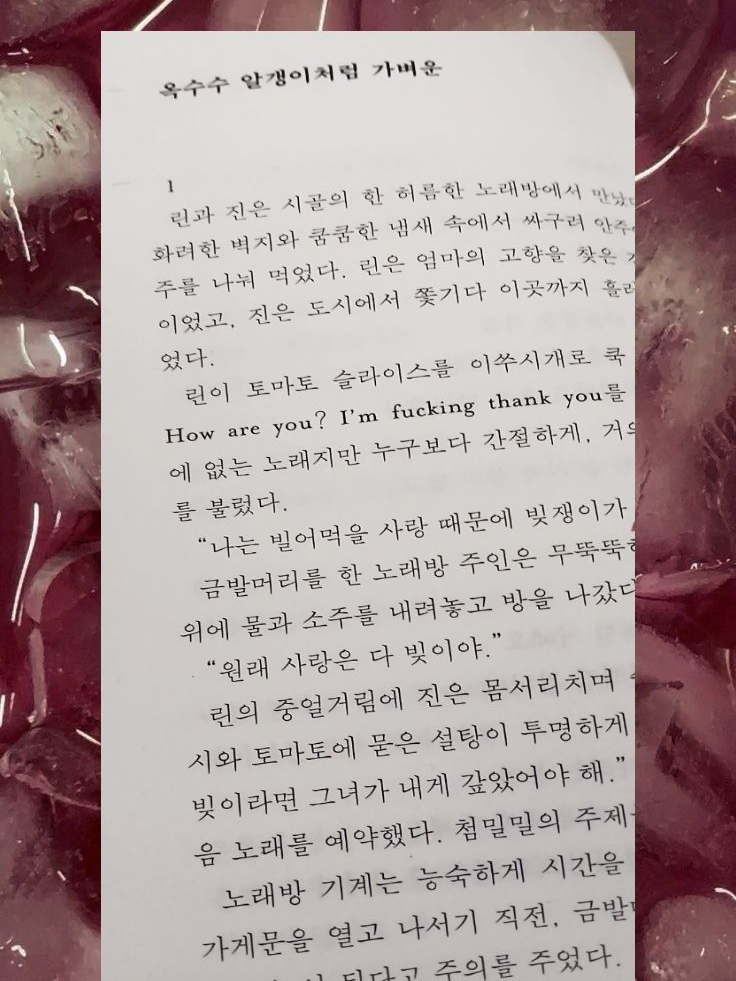 옥수수 알갱이처럼 가벼운
1
린과 진은 시골의 한 허름한 노래방에서
화려한 벽지와 쿰쿰한 냄새 속에서 싸구려
주를 나눠 먹었다. 린은 엄마의 고향을 찾은
이었고, 진은 도시에서 쫓기다 이곳까지
었다.
린이 토마토 슬라이스를 이쑤시개로 쿡
How are you? I'm fucking thank you를
에 없는 노래지만 누구보다 간절하게,
를 불렀다.
“나는 빌어먹을 사랑 때문에 빚쟁이가
금발머리를 한 노래방 주인은
위에 물과 소주를 내려놓고 방을
“원래 사랑은 다 빚이야.”
린의 중얼거림에 진은 몸서리치며
시와 토마토에 묻은 설탕이 투명하게
빚이라면 그녀가 내게 갚았어야 해.”
음 노래를 예약했다. 첨밀밀의
노래방 기계는 능숙하게 시간을
가게문을 열고 나서기 직전,
된다고 주의를 주었다.